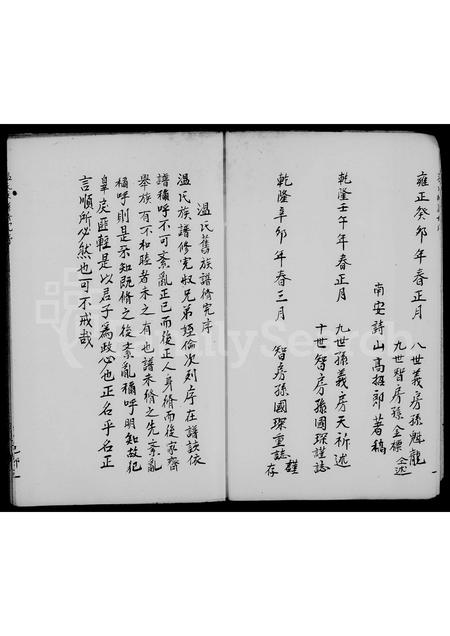 雍正癸卯年春正月
八世義房孫麟龍
九世智房孫金標仝述
南安詩山高招郎著稿
乾隆壬午年春正月
九世孫義房天祈述
十世智房孫國琛謹誌
乾隆辛卯年春三月
智房孫國琛重誌謹存
溫氏舊族譜修完序
溫氏族譜修完奴兄弟姪倫次列序在譜該依
譜稱呼不可紊亂正已而後正人身脩而後家齊
舉族有不和睦者未之有也譜未脩之先紊亂
稱呼則是不知既脩之後紊亂稱呼明知故犯
皐戾匪輕是以君子為政必也正名乎名正
言順所必然也可不戒哉
FamilySearch